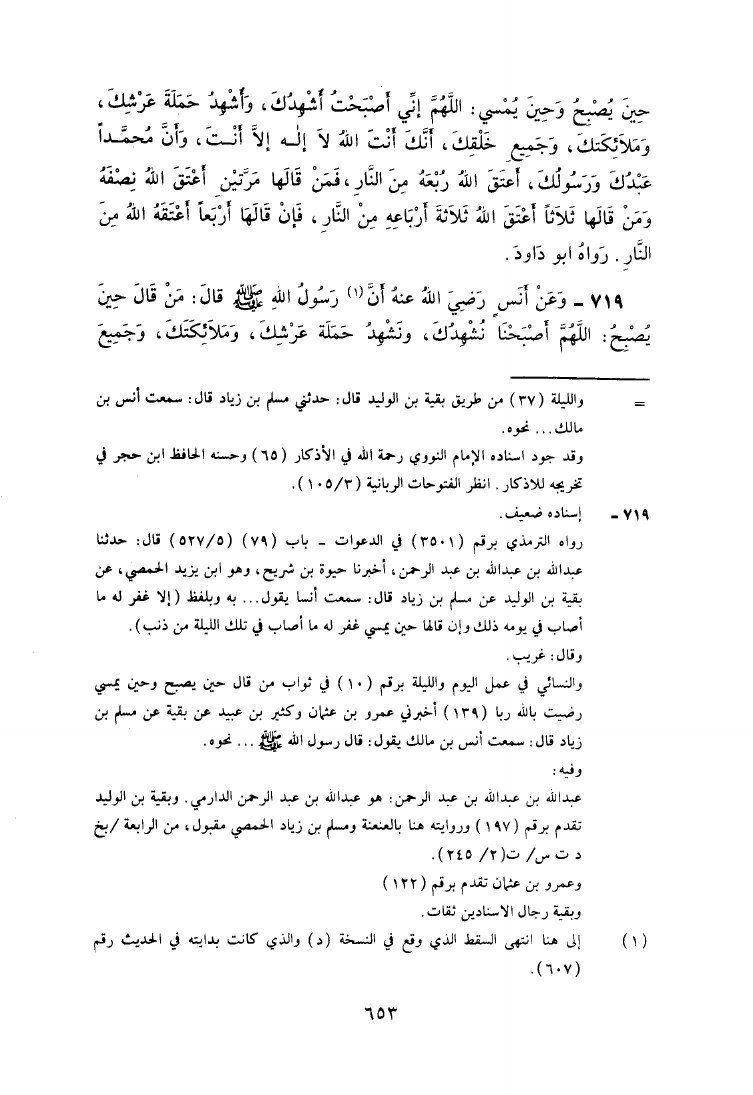 حِينَ يُصْبِحُ وَحِينَ يُمْسِي: اللَّهُمَّ إِنِّي أَصْبَحْتُ أُشْهِدُكَ، وَأُشْهِدُ حَمَلَةَ عَرْشِكَ،
وَمَلَائِكَتَكَ، وَجَمِيعِ خَلْقِكَ، أَنَّكَ أَنْتَ اللهُ لاَ إلٰـه إلاَّ أَنْـتَ، وَأَنَّ مُحمَّـداً
عَبْدُكَ وَرَسُولُكَ، أَعتَقَ اللهُ رُبْعَهُ مِنَ النَّارِ، فَمَنْ قَالَها مَرَّتْينِ أَعْتَقَ اللهُ نِصْفَهُ
وَمَنْ قَالَها ثَلَاثاً أَعْتَقَ اللهُ ثَلَاثَةَ أَرْبَاعِهِ مِنْ النَّارِ، فَإنْ قَالَهَا أَرْبَعاً أَعْتَقَهُ اللهُ مِنَ
النَّارِ. رَواهُ ابو دَاودَ.
٧١٩ ـ وَعَنْ أَنَسٍ رَضِيَ اللهُ عنهُ أَنَّ(١) رَسُولُ اللهِ ﷺ قالَ: مَنْ قَالَ حِينَ
يُصْبِحُ: اللَّهُمَّ أَصْبَحْنَا نُشْهِدُكَ، ونَشْهِدُ حَمَلَةَ عَرْشِكَ، وَمَلَائِكَتَكَ، وَجَمِيعَ
= والليلة (٣٧) من طريق بقية بن الوليد قال: حدثني مسلم بن زياد قال: سمعت أنس بن
مالك... نحوه.
وقد جود اسناده الإمام النووي رحمة الله في الأذكار (٦٥) وحسنه الحافظ ابن حجر في
تخريجه للاذكار. انظر الفتوحات الربانية (١٠٥/٣).
٧١٩ ـ إسناده ضعيف.
رواه الترمذي برقم (٣٥٠١) في الدعوات ـ باب (٧٩) (٥٢٧/٥) قال: حدثنا
عبدالله بن عبدالله بن عبد الرحمن، أخبرنا حيوة بن شريح، وهو ابن يزيد الحمصي، عن
بقية بن الوليد عن مسلم بن زياد قال: سمعت أنسا يقول... به وبلفظ (إلا غفر له ما
أصاب في يومه ذلك وإن قالها حين يمسي غفر له ما أصاب في تلك الليلة من ذنب).
وقال: غريب.
والنسائي في عمل اليوم والليلة برقم (١٠) في ثواب من قال حين يصبح وحين يمسي
رضيت بالله ربا (١٣٩) أخبرني عمرو بن عثمان وكثير بن عبيد عن بقية عن مسلم بن
زياد قال: سمعت أنس بن مالك يقول: قال رسول الله ﷺ... نحوه.
وفيه:
عبدالله بن عبدالله بن عبد الرحمن: هو عبدالله بن عبد الرحمن الدارمي. وبقية بن الوليد
تقدم برقم (١٩٧) وروايته هنا بالعنعنة ومسلم بن زياد الحمصي مقبول، من الرابعة /بخ
د ت س/ ت(٢/ ٢٤٥).
وعمرو بن عثمان تقدم برقم (١٢٢)
وبقية رجال الاسنادين ثقات.
(١) إلى هنا انتهى السقط الذي وقع في النسخة (د) والذي كانت بدايته في الحديث رقم
(٦٠٧).
٦٥٣